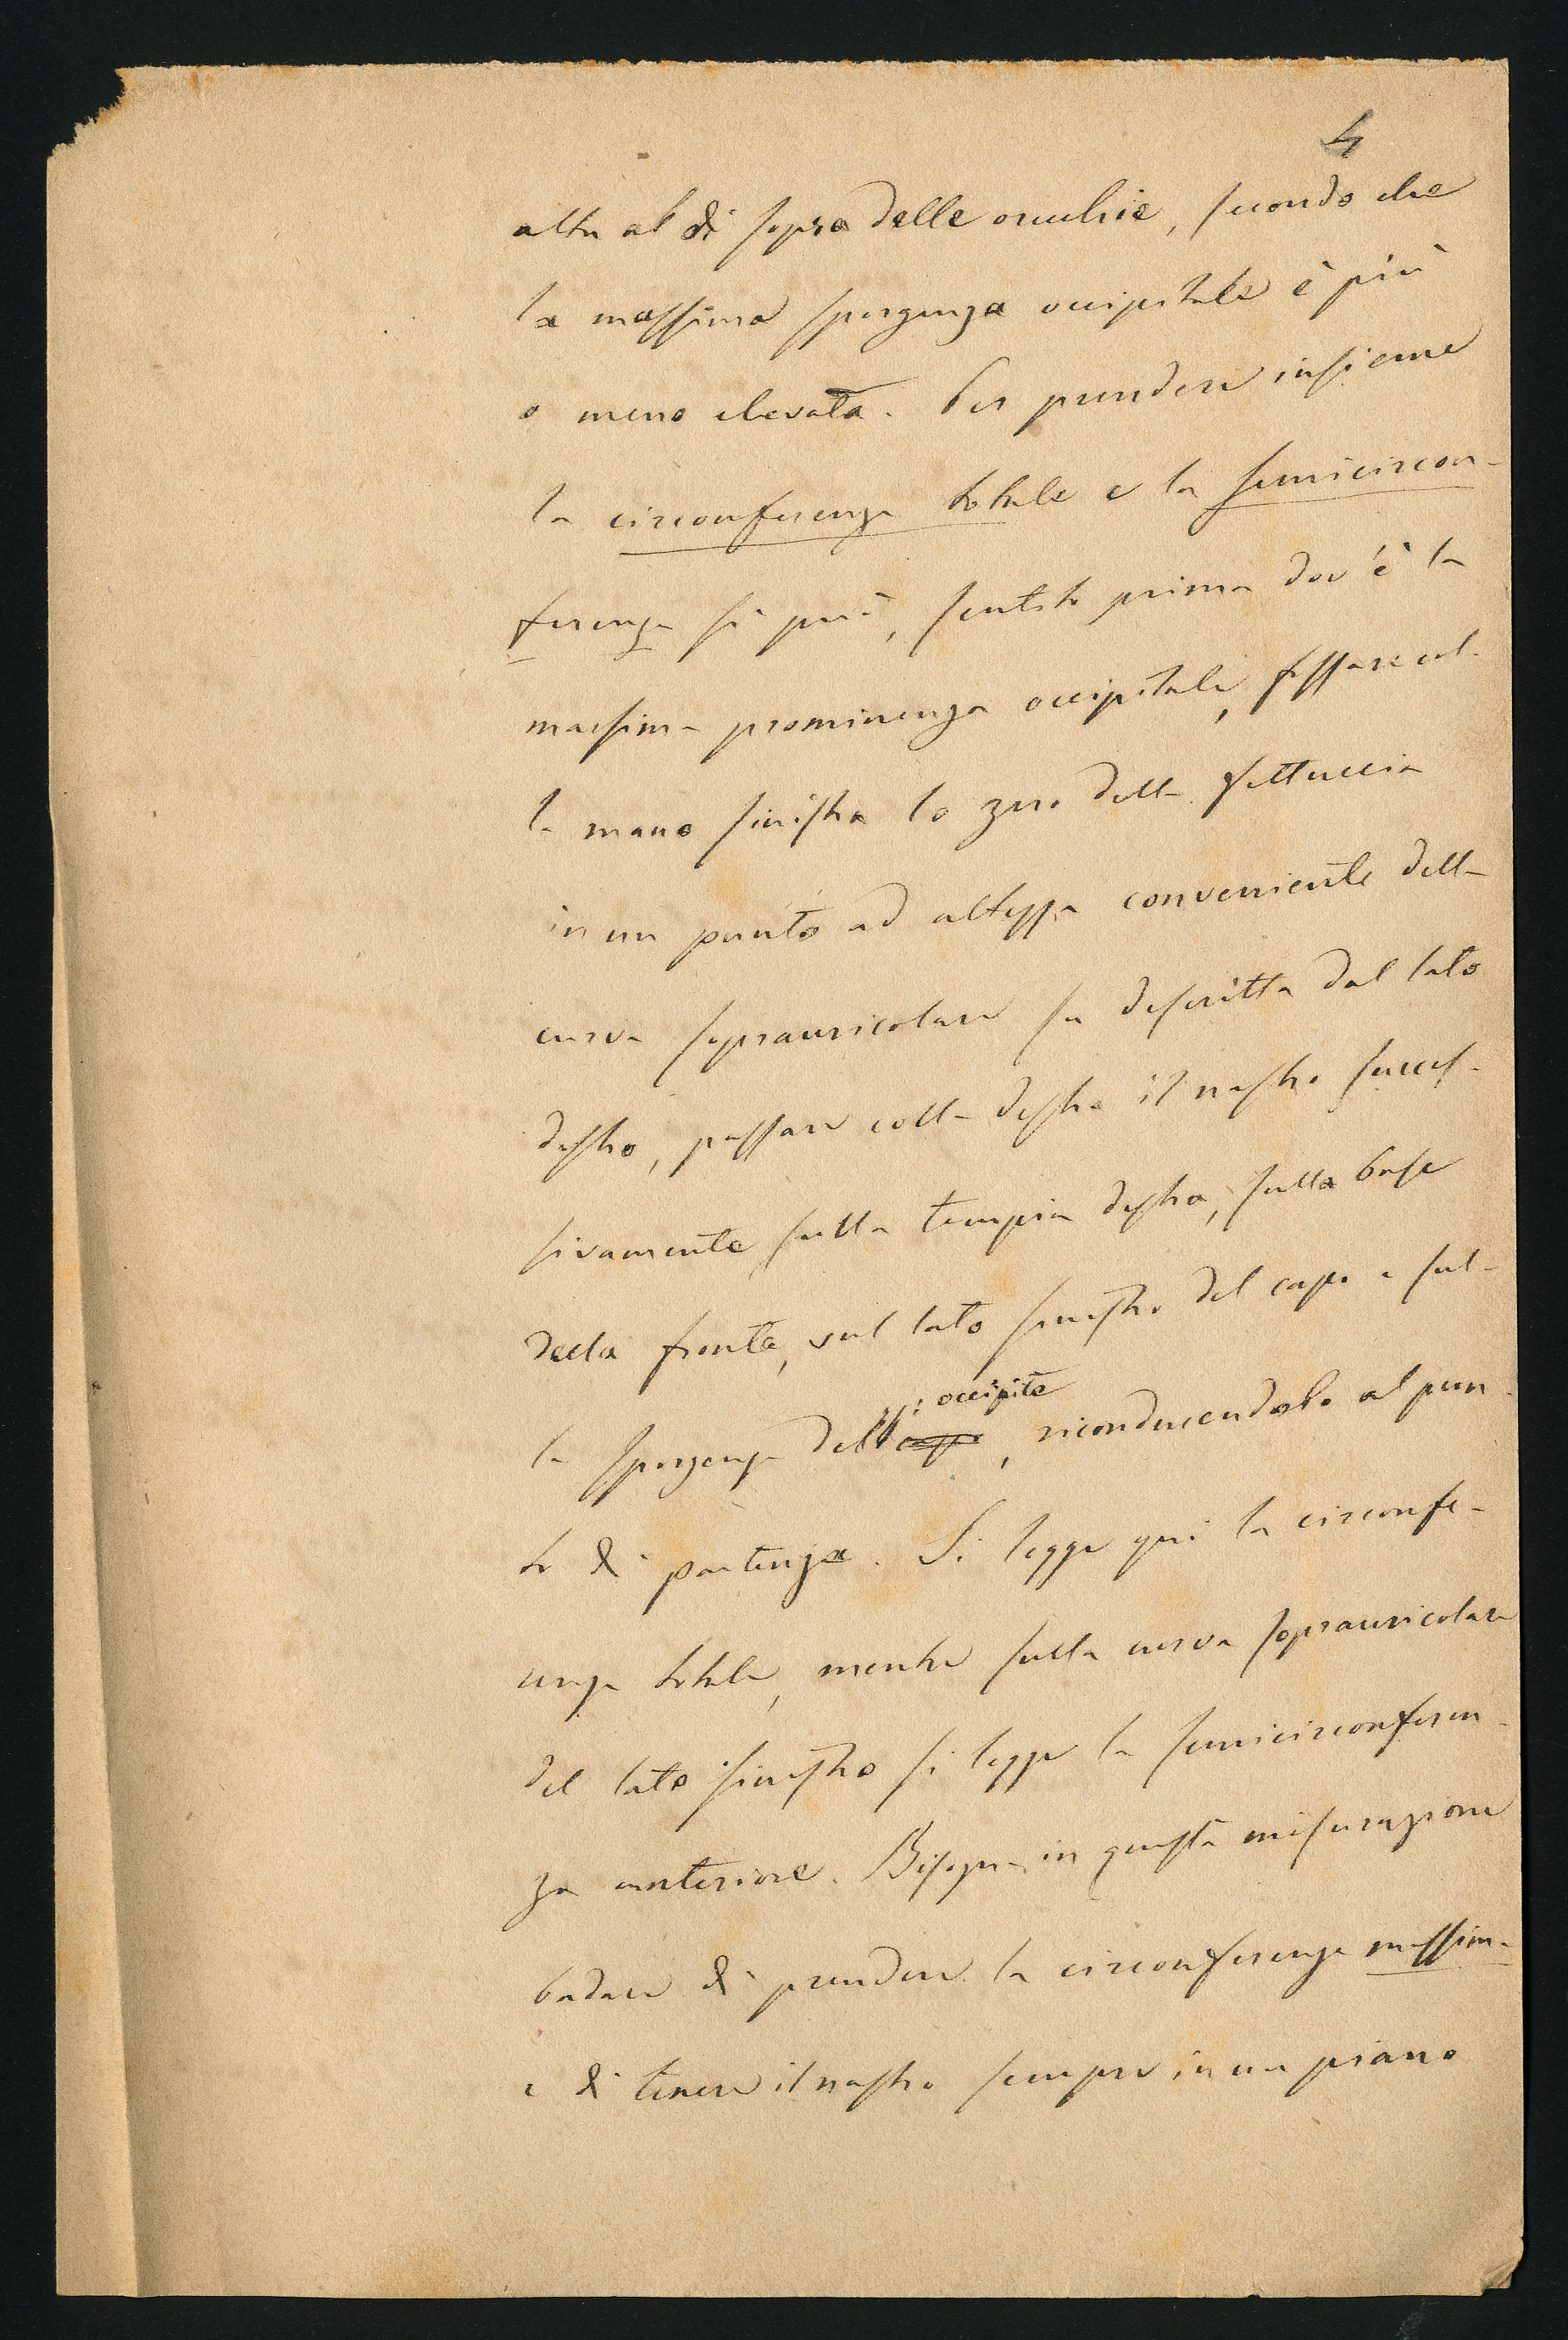 4
alta al di sopra delle orecchie, secondo che
la massima sporgenza occipitale è più
o meno elevata. Per prendere insieme
la circonferenza totale e la semicircon-
ferenza si può, sentito prima dov'è la
massima prominenza occipitale, fissare col-
la mano sinistra lo zero della fettuccia
in un punto ad altezza conveniente della
curva sopraauricolare su descritta dal lato
destro, passare colla destra il nastro succes-
sivamente sulla tempia destra, sulla base
della fronte, sul lato sinistro del capo e sul-
la sporgenza dell'occipite, riconducendolo al pun-
to di partenza. Si legge qui la circonfe-
renza totale, mentre sulla curva sopraauricolare
del lato sinistro si legge la semicirconferen-
za anteriore. Bisogna in questa misurazione
badare di prendere la circonferenza massima
e di tenere il nastro sempre in un piano